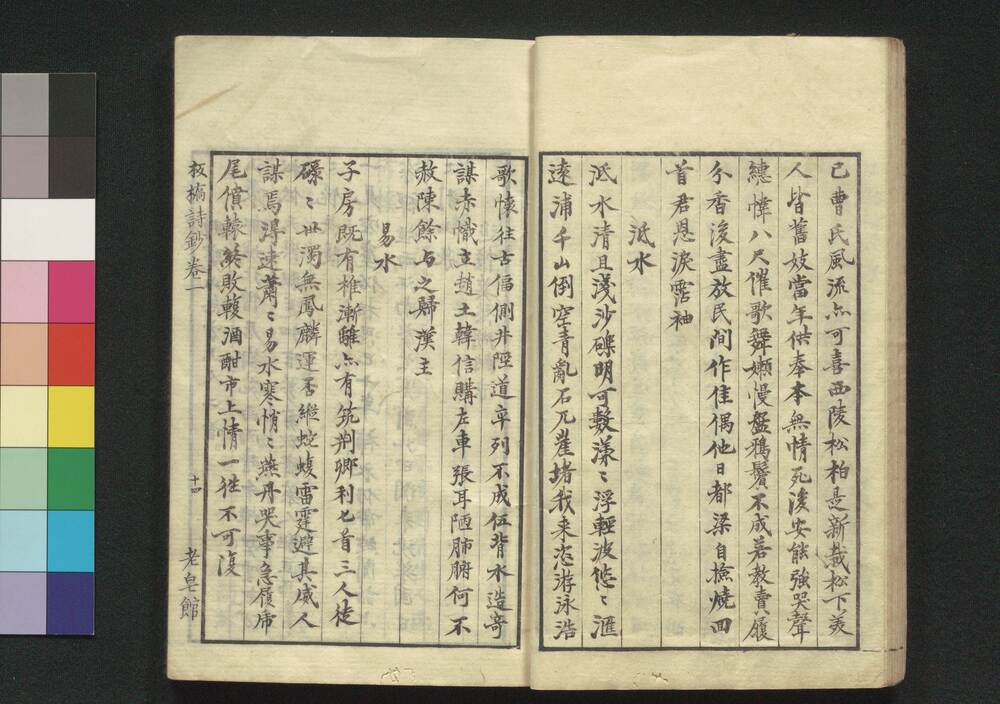 已曹氏風流亦可喜西陵松柏是新栽松下美
人皆舊妓當年供奉本無情死後安能強哭聲
繐幃八尺催歌舞嬾慢盤鴉鬢不成若教賣履
分香後盡放民間作佳偶他日都梁自撿燒回
首君恩淚霑袖
泜水
泜水清且淺沙礫明可數漾〻浮輕波悠〻滙
遠浦千山倒空青亂石兀崖堵我来恣游泳浩
歌懷往古偪側井陘道卒列不成伍背水造奇
謀赤幟立趙土韓信購左車張耳陋肺腑何不
赦陳餘与之歸漢主
易水
子房既有椎漸離亦有筑荆卿利匕首三人徒
碌〻世濁無鳳麟運否縱蛟蝮雷霆避其威人
謀焉得速蕭〻易水寒悄〻燕丹哭事急履虎
尾僨轅終敗輹酒酣市上情一往不可復
板橋詩鈔卷二
十四
老皂館